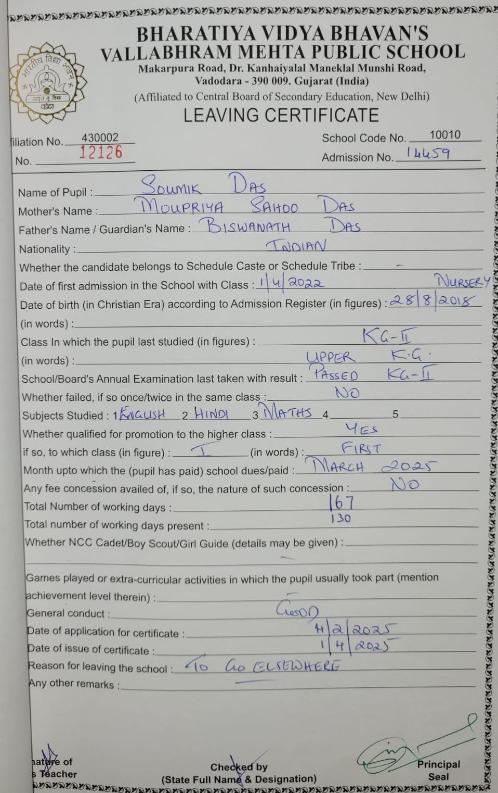 BHARATIYA VIDYA BHAVAN'S
VALLABHRAM MEHTA PUBLIC SCHOOL
Makarpura Road, Dr. Kanhaiyalal Maneklal Munshi Road,
Vadodara - 390 009. Gujarat (India)
(Affiliated to Central Board of Secondary Education, New Delhi)
LEAVING CERTIFICATE
filiation No. 430002 School Code No. 10010
No. 12126 Admission No. 14459
Name of Pupil : SOUMIK DAS
Mother's Name : MOUPRIYA SAHOO DAS
Father's Name / Guardian's Name : BISWANATH DAS
Nationality : INDIAN
Whether the candidate belongs to Schedule Caste or Schedule Tribe : -
Date of first admission in the School with Class : 1/4/2022 NURSERY
Date of birth (in Christian Era) according to Admission Register (in figures) : 28/8/2018
(in words) :
Class In which the pupil last studied (in figures) : KG-II
(in words) : UPPER K.G.
School/Board's Annual Examination last taken with result : PASSED KG-II
Whether failed, if so once/twice in the same class : NO
Subjects Studied : 1 ENGLISH 2 HINDI 3 MATHS 4 5
Whether qualified for promotion to the higher class : YES
if so, to which class (in figure) : I (in words) : FIRST
Month upto which the (pupil has paid) school dues/paid : MARCH 2025
Any fee concession availed of, if so, the nature of such concession : NO
Total Number of working days : 167
Total number of working days present : 130
Whether NCC Cadet/Boy Scout/Girl Guide (details may be given) :
-
Games played or extra-curricular activities in which the pupil usually took part (mention
achievement level therein) : -
General conduct : GOOD
Date of application for certificate : 4/2/2025
Date of issue of certificate : 1/4/2025
Reason for leaving the school : TO GO ELSEWHERE
Any other remarks :
nature of Checked by Principal
s Teacher (State Full Name & Designation) Seal